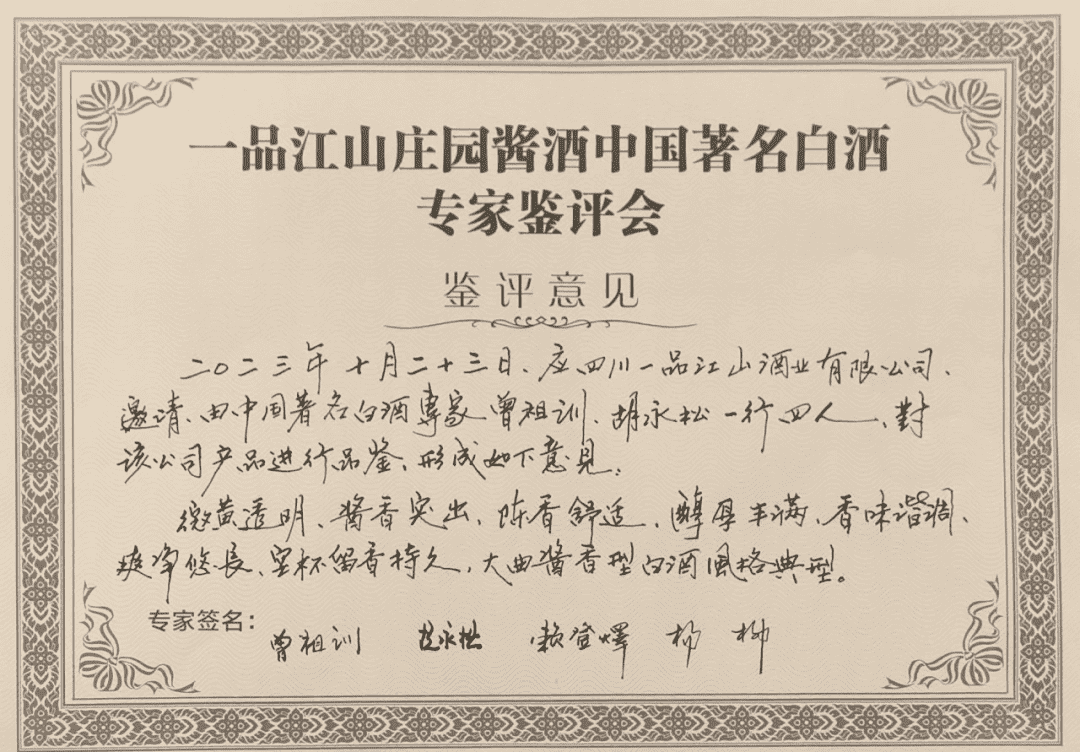 一品江山庄园酱酒中国著名白酒
专家鉴评会
鉴评意见
二〇二三年十月二十三日、应四川一品江山酒业有限公司、
邀请、由中国著名白酒專家曾祖训、胡永松一行四人、對
该公司产品进行品鉴、形成如下意见：
微黄透明、酱香突出、陈香舒适、醇厚丰满、香味谐调、
爽净悠长、空杯留香持久，大曲酱香型白酒风格典型。
专家签名：
曾祖训 胡永松 赖登燡 杨柳